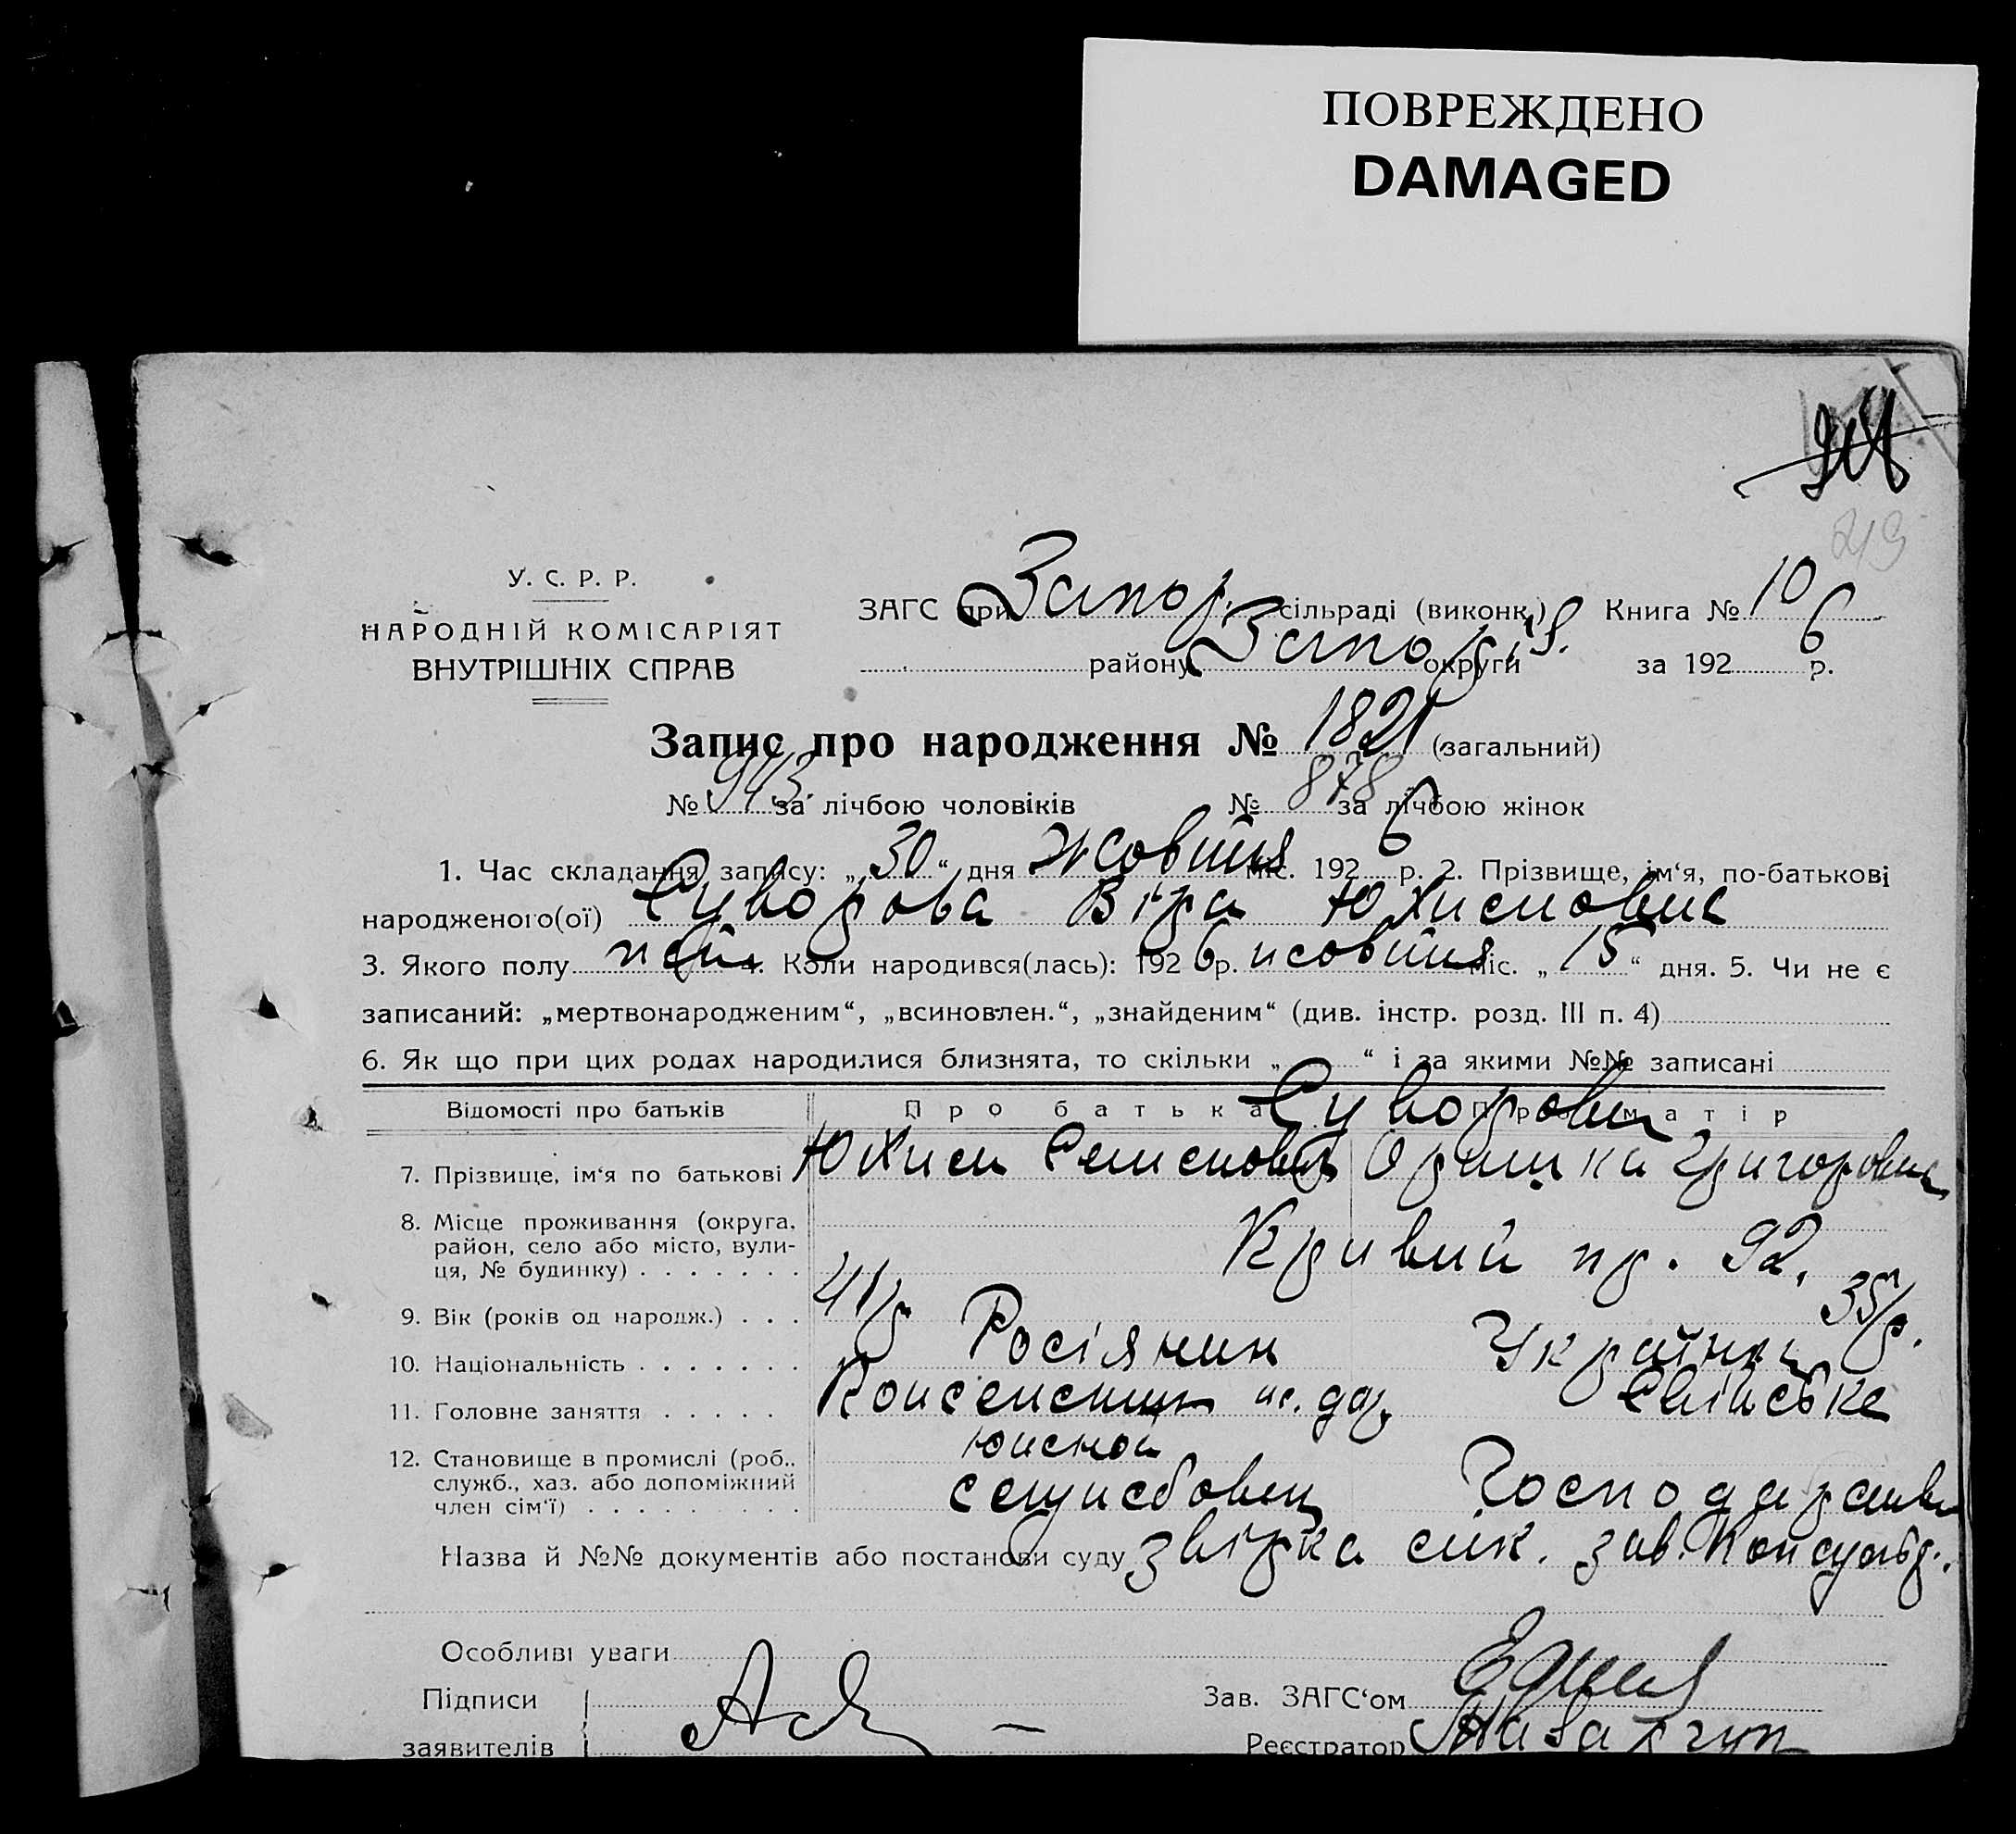 ПОВРЕЖДЕНО
DAMAGED
219
У. С. Р. Р.
НАРОДНІЙ КОМІСАРІЯТ
ВНУТРІШНІХ СПРАВ
ЗАГС при Запор. сільраді (виконк.) Книга № 10
району Запоріз. округи за 1926 р.
Запис про народження № 1821 (загальний)
№ 943. за лічбою чоловіків № 878 за лічбою жінок
1. Час складання запису: „30“ дня жовтня міс. 1926 р. 2. Прізвище, ім‘я, по-батькові
народженого(ої) Суворова Віра Юхимовна
3. Якого полу 4. Коли народився(лась): 1926 р. жовтня міс. „15“ дня. 5. Чи не є
записаний: „мертвонародженим“, „всиновлен.“, „знайденим“ (див. інстр. розд. III п. 4)
6. Як що при цих родах народилися близнята, то скільки „ “ і за якими №№ записані
Відомості про батьків Про батька Про матір
Суворови
7. Прізвище, ім‘я по батькові Юхим Семенович Григоровна
8. Місце проживання (округа, район, село або місто, вули-ця, № будинку) Кривий пр. 92.
9. Вік (років од народж.) 41/р 35/р.
10. Національність Росіянин Українка
11. Головне заняття Сельське
12. Становище в промислі (роб., служб., хаз. або допоміжний член сім‘ї) служебовец Господарство
Назва й №№ документів або постанови суду звірка зав.
Особливі уваги
Підписи
заявителів
Зав. ЗАГС‘ом
Реєстратор